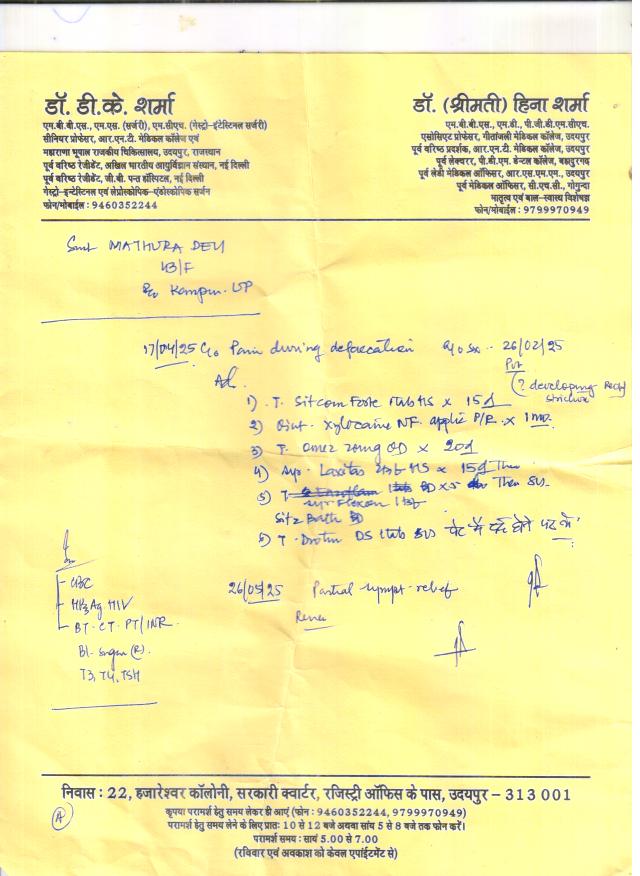 डॉ. डी.के. शर्मा
एम.बी.बी.एस., एम.एस. (सर्जरी), एम.सीएच. (गेस्ट्रो-इंटेस्टिनल सर्जरी)
सीनियर प्रोफेसर, आर.एन.टी. मेडिकल कॉलेज एवं
महाराणा भूपाल राजकीय चिकित्सालय, उदयपुर, राजस्थान
पूर्व वरिष्ठ रेजीडेंट, अखिल भारतीय आयुर्विज्ञान संस्थान, नई दिल्ली
पूर्व वरिष्ठ रेजीडेंट, जी.बी. पन्त हॉस्पिटल, नई दिल्ली
गेस्ट्रो-इन्टेस्टिनल एवं लेप्रोस्कोपिक-एंडोस्कोपिक सर्जन
फोन/मोबाईल : 9460352244
डॉ. (श्रीमती) हिना शर्मा
एम.बी.बी.एस., एम.डी., पी.जी.डी.एम.सीएच.
एसोसिएट प्रोफेसर, गीतांजली मेडिकल कॉलेज, उदयपुर
पूर्व वरिष्ठ प्रदर्शक, आर.एन.टी. मेडिकल कॉलेज, उदयपुर
पूर्व लेक्चरर, पी.डी.एम. डेन्टल कॉलेज, बहादुरगढ़
पूर्व लेडी मेडिकल ऑफिसर, आर.एस.एम.एम., उदयपुर
पूर्व मेडिकल ऑफिसर, सी.एच.सी., गोगुन्दा
मातृत्व एवं बाल-स्वास्थ्य विशेषज्ञ
फोन/मोबाईल : 9799970949
Smt MATHURA DEVI
43/F
R/o Kanpur. UP
17/04/25 C/o Pain during defaecation 26/02/25
(? developing Rectal stricture
Ad.
1) T. Sitcom Forte 1tab HS x 15d
2) Oint. Xylocaine NF. applic P/R. x 1 mo.
3) T. Omez 20mg OD x 20d
4) Syr. Laxitas HS x 15d Then
5) T. BD x 5 Then SOS.
Syr Flexon
Sitz Bath BD
6) T. Drotin DS 1tab SOS पेट में दर्द होने पर
CBC
HBsAg HIV
BT. CT. PT/INR.
Bl. Sugar (R).
T3, T4, TSH
26/05/25 Partial sympt. relief
निवास : 22, हजारेश्वर कॉलोनी, सरकारी क्वार्टर, रजिस्ट्री ऑफिस के पास, उदयपुर – 313 001
कृपया परामर्श हेतु समय लेकर ही आएं (फोन : 9460352244, 9799970949)
परामर्श हेतु समय लेने के लिए प्रातः 10 से 12 बजे अथवा सांय 5 से 8 बजे तक फोन करें।
परामर्श समय : सायं 5.00 से 7.00
(रविवार एवं अवकाश को केवल एपांईटमेंट से)
A